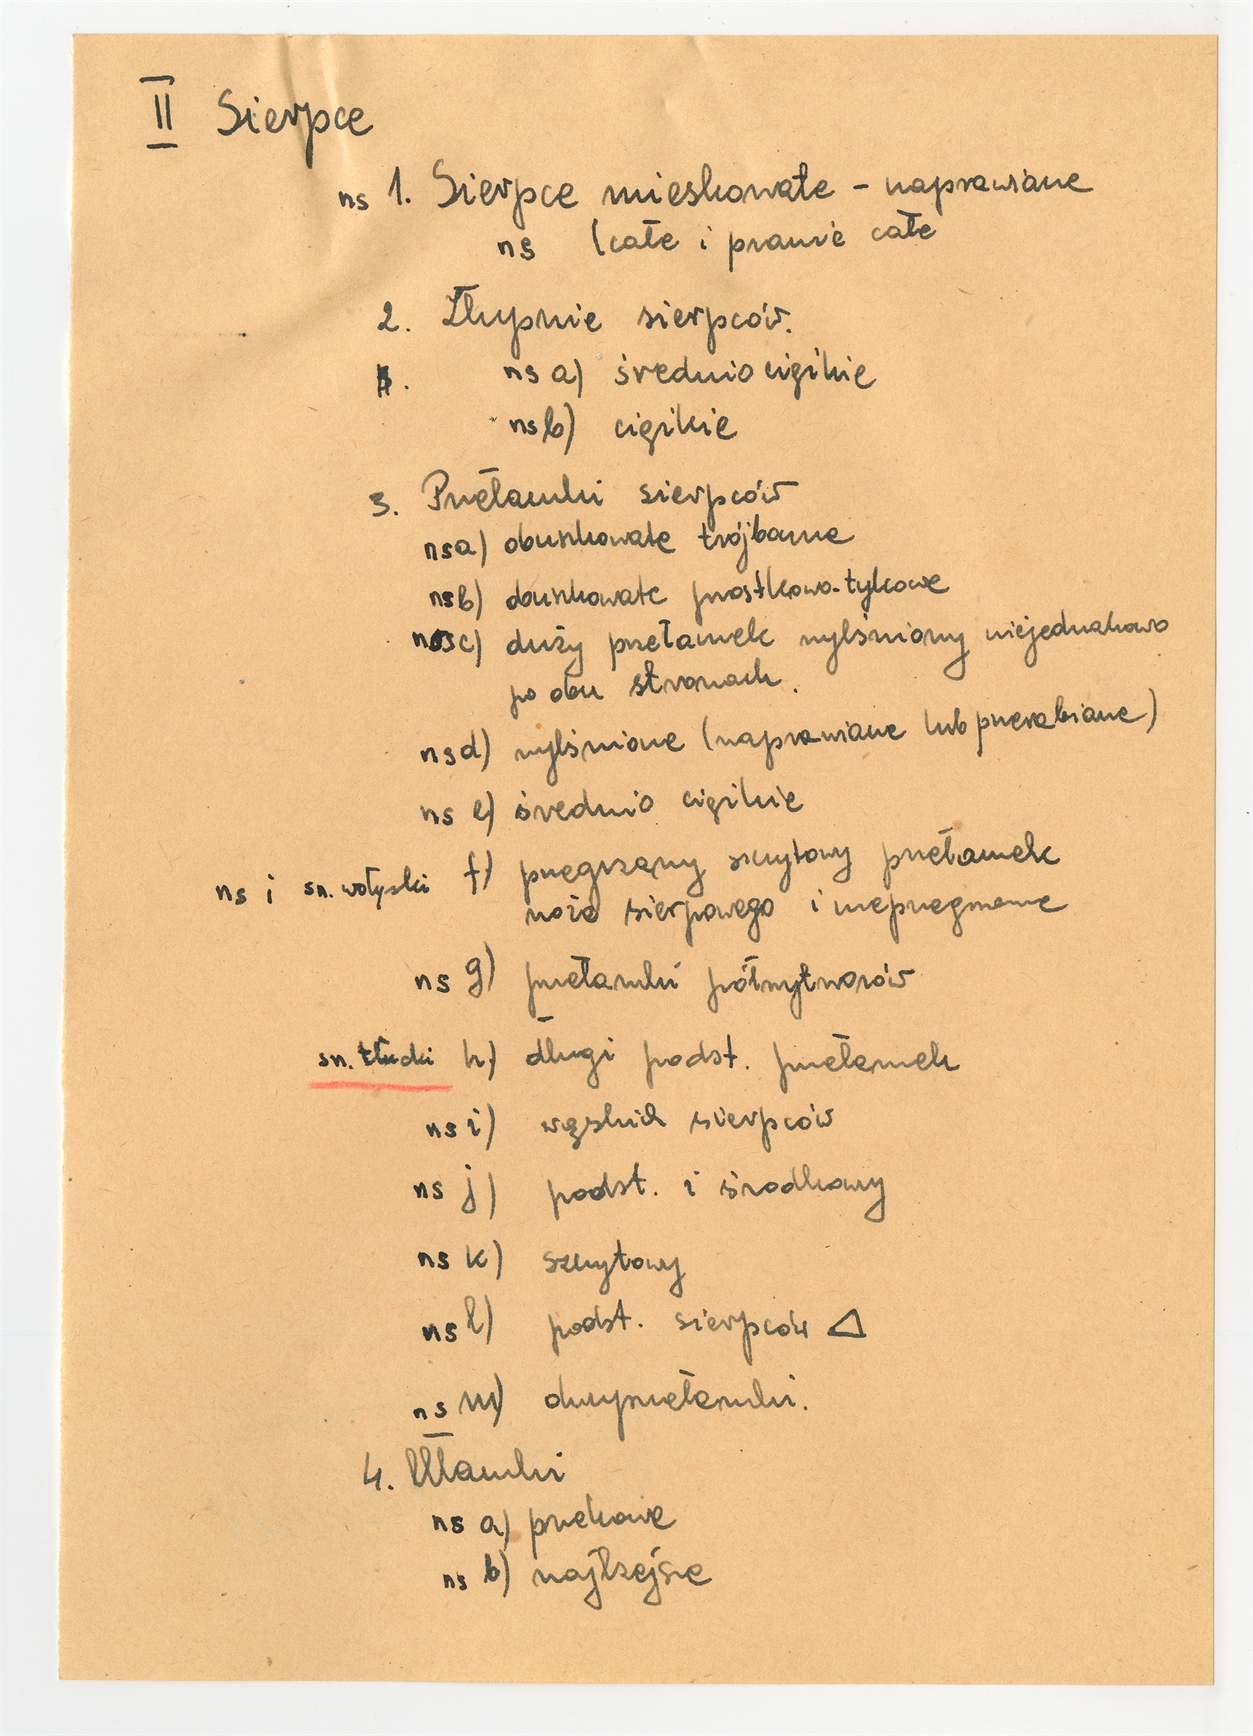 II Sierpce
ns 1. Sierpce mieszkowate - naprawiane
ns (całe i prawie całe
2. Złupnie sierpców.
ns a) średnio ciężkie
ns b) ciężkie
3. Przełamki sierpców
ns a) obuszkowate trójbarwne
ns b) obuszkowate prostkowo-tylcowe
ns c) duży przełamek wyślniony niejednakowo
po obu stronach.
ns d) wyślnione (naprawiane lub przerabiane)
ns e) średnio ciężkie
ns i sn. wołyński f) szczytowy przełamek
noża sierpowego i
ns g) przełamki półwytworów
sn. tłucki h) długi podst. przełamek
ns i) wąskich sierpców
ns j) podst. i środkowy
ns k) szczytowy
ns l) podst. sierpców △
ns m) dwuprzełamki.
4. Ułamki
ns a)
ns b) najlżejsze